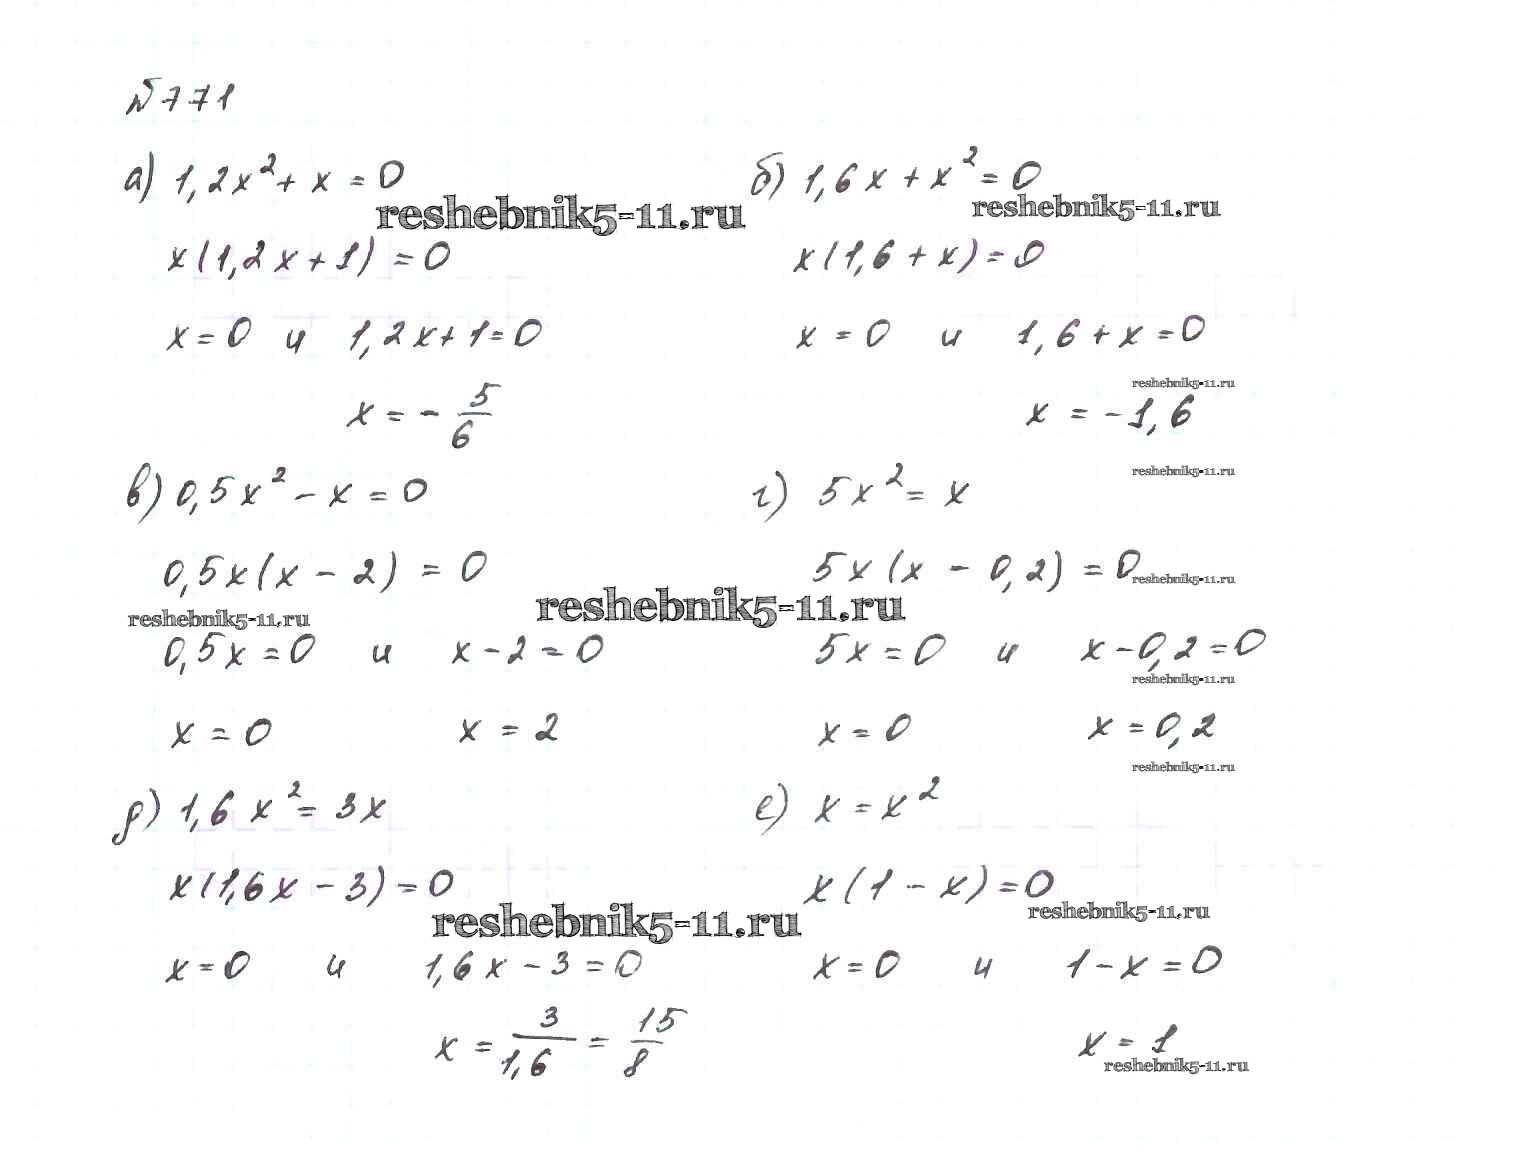 №771
а) 1,2x² + x = 0
reshebnik5-11.ru
x(1,2x + 1) = 0
x = 0 и 1,2x + 1 = 0
x = - 5/6
б) 1,6x + x² = 0
reshebnik5-11.ru
x(1,6 + x) = 0
x = 0 и 1,6 + x = 0
reshebnik5-11.ru
x = -1,6
reshebnik5-11.ru
в) 0,5x² - x = 0
0,5x(x - 2) = 0
reshebnik5-11.ru
reshebnik5-11.ru
0,5x = 0 и x - 2 = 0
x = 0 x = 2
г) 5x² = x
5x(x - 0,2) = 0
reshebnik5-11.ru
5x = 0 и x - 0,2 = 0
reshebnik5-11.ru
x = 0 x = 0,2
reshebnik5-11.ru
д) 1,6x² = 3x
x(1,6x - 3) = 0
reshebnik5-11.ru
x = 0 и 1,6x - 3 = 0
x = 3/1,6 = 15/8
е) x = x²
x(1 - x) = 0
reshebnik5-11.ru
x = 0 и 1 - x = 0
x = 1
reshebnik5-11.ru